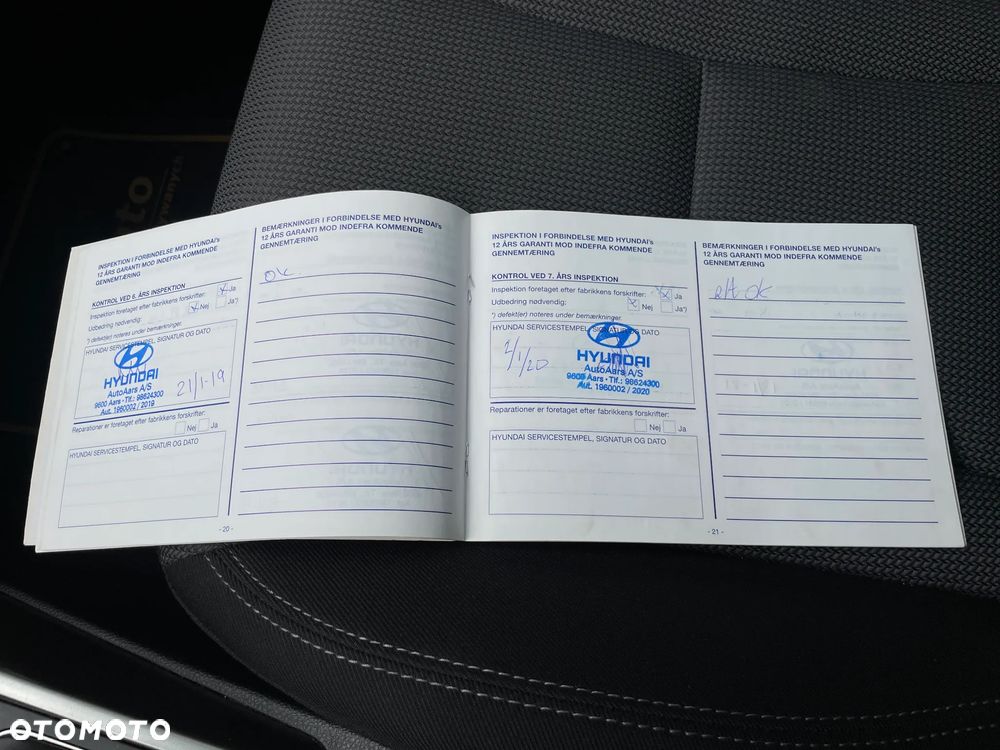 INSPEKTION I FORBINDELSE MED HYUNDAI's
12 ÅRS GARANTI MOD INDEFRA KOMMENDE
GENNEMTÆRING
KONTROL VED 6. ÅRS INSPEKTION
Inspektion foretaget efter fabrikkens forskrifter: x Ja
Udbedring nødvendig: x Nej Ja*)
*) defekt(er) noteres under bemærkninger.
HYUNDAI SERVICESTEMPEL, SIGNATUR OG DATO
HYUNDAI
AutoAars A/S
9600 Aars · Tlf.: 98624300
Aut. 1960002 / 2019
21/1-19
Reparationer er foretaget efter fabrikkens forskrifter:
Nej Ja
HYUNDAI SERVICESTEMPEL, SIGNATUR OG DATO
- 20 -
BEMÆRKNINGER I FORBINDELSE MED HYUNDAI's
12 ÅRS GARANTI MOD INDEFRA KOMMENDE
GENNEMTÆRING
OK.
INSPEKTION I FORBINDELSE MED HYUNDAI's
12 ÅRS GARANTI MOD INDEFRA KOMMENDE
GENNEMTÆRING
KONTROL VED 7. ÅRS INSPEKTION
Inspektion foretaget efter fabrikkens forskrifter: x Ja
Udbedring nødvendig: x Nej Ja*)
*) defekt(er) noteres under bemærkninger.
HYUNDAI SERVICESTEMPEL, SIGNATUR OG DATO
2/1/20
HYUNDAI
AutoAars A/S
9600 Aars · Tlf.: 98624300
Aut. 1960002 / 2020
Reparationer er foretaget efter fabrikkens forskrifter:
Nej Ja
HYUNDAI SERVICESTEMPEL, SIGNATUR OG DATO
- 21 -
BEMÆRKNINGER I FORBINDELSE MED HYUNDAI's
12 ÅRS GARANTI MOD INDEFRA KOMMENDE
GENNEMTÆRING
alt ok
OTOMOTO